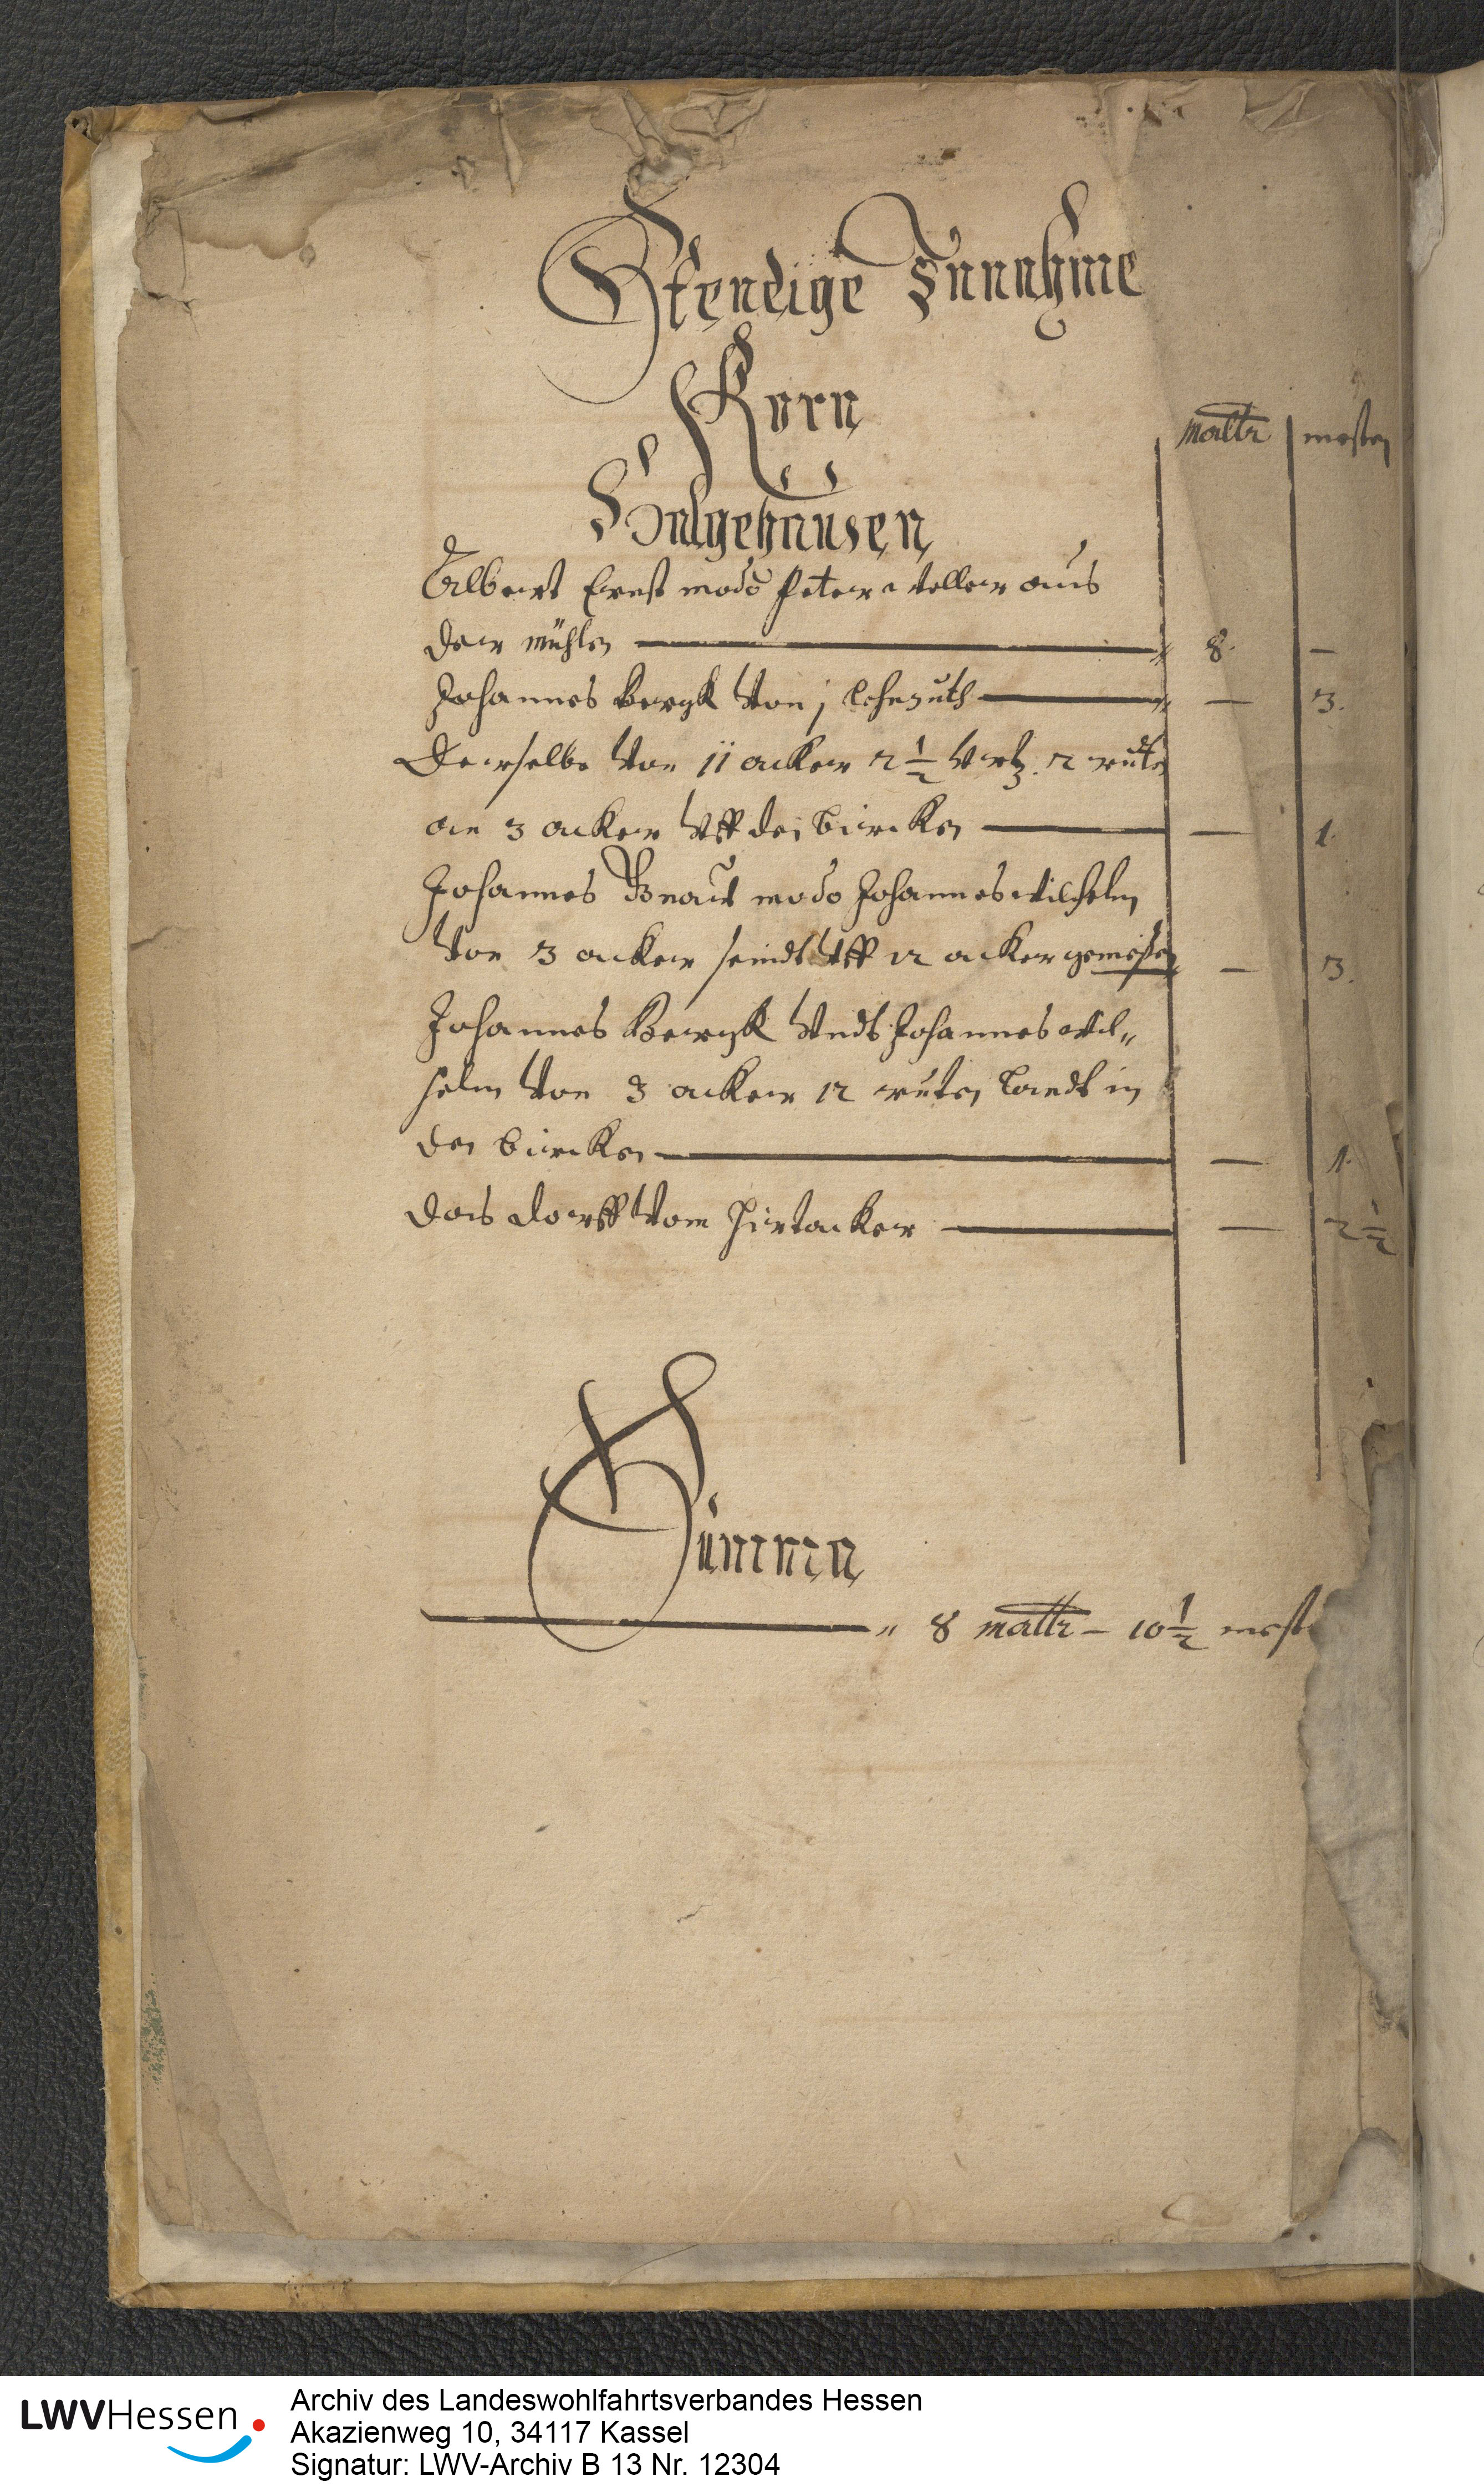 Stendige Innahme
Korn
maltr mesten
Halgehausen
Albert Ernst modo Peter Möller aus
der Mühlen 8. —
Johannes Bergk von j Lehngüth — 3.
Derselbe von 11 acker 2 1/2 Vrtz. 2 ruten
an 3 acker vff der bircken — 1.
Johannes Bnaut modo Johannes Wilhelm
von 3 acker seindt vff 12 acker gemessen — 3.
Johannes Bergk vndt Johannes Wil„
helm von 3 acker 12 ruten landt in
den bircken — 1.
das dorff vom Hirtacker — 2 1/2
Summa
8 maltr — 10 1/2 mest
LWVHessen
Archiv des Landeswohlfahrtsverbandes Hessen
Akazienweg 10, 34117 Kassel
Signatur: LWV-Archiv B 13 Nr. 12304